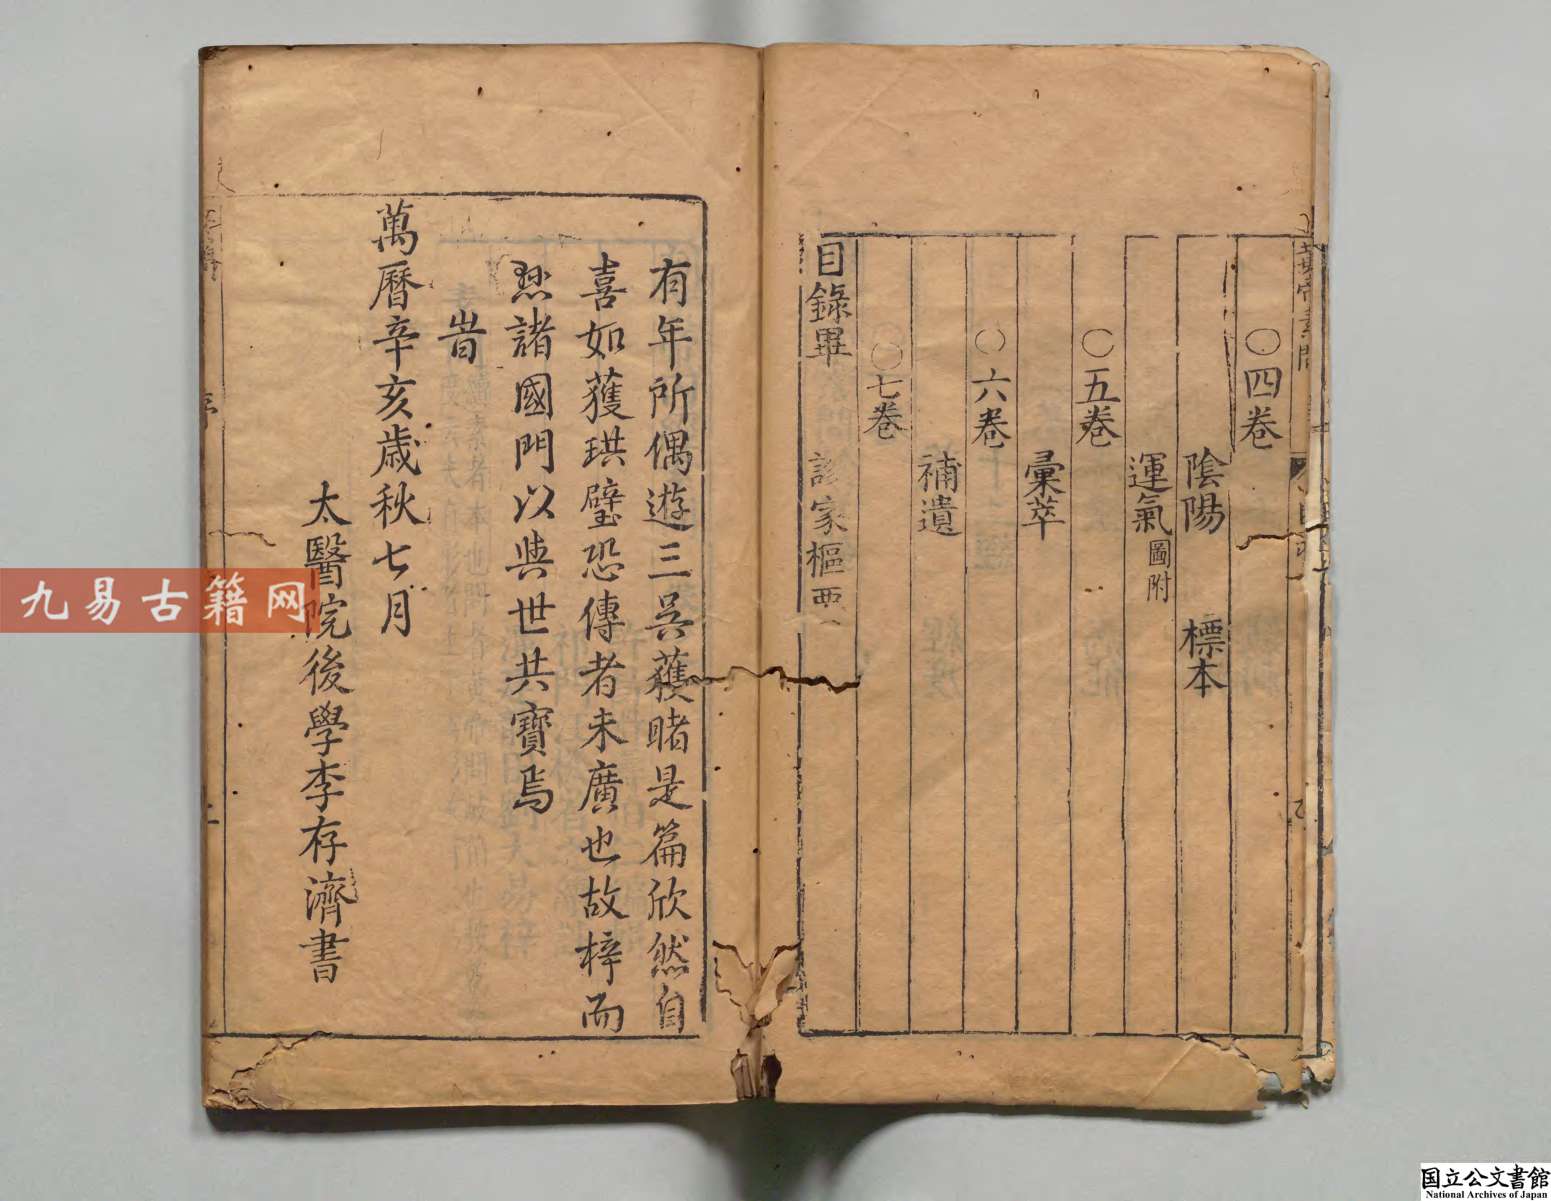 黃帝素問
○四卷
陰陽 標本
運氣 圖附
○五卷
彙萃
○六卷
補遺
○七卷
診家樞要
目錄畢
有年所偶遊三吳獲睹是篇欣然自
喜如獲珙璧恐傳者未廣也故梓而
懸諸國門以與世共寶焉
旹
萬曆辛亥歲秋七月
太醫院後學李存濟書
九易古籍网
国立公文書館
National Archives of Japan